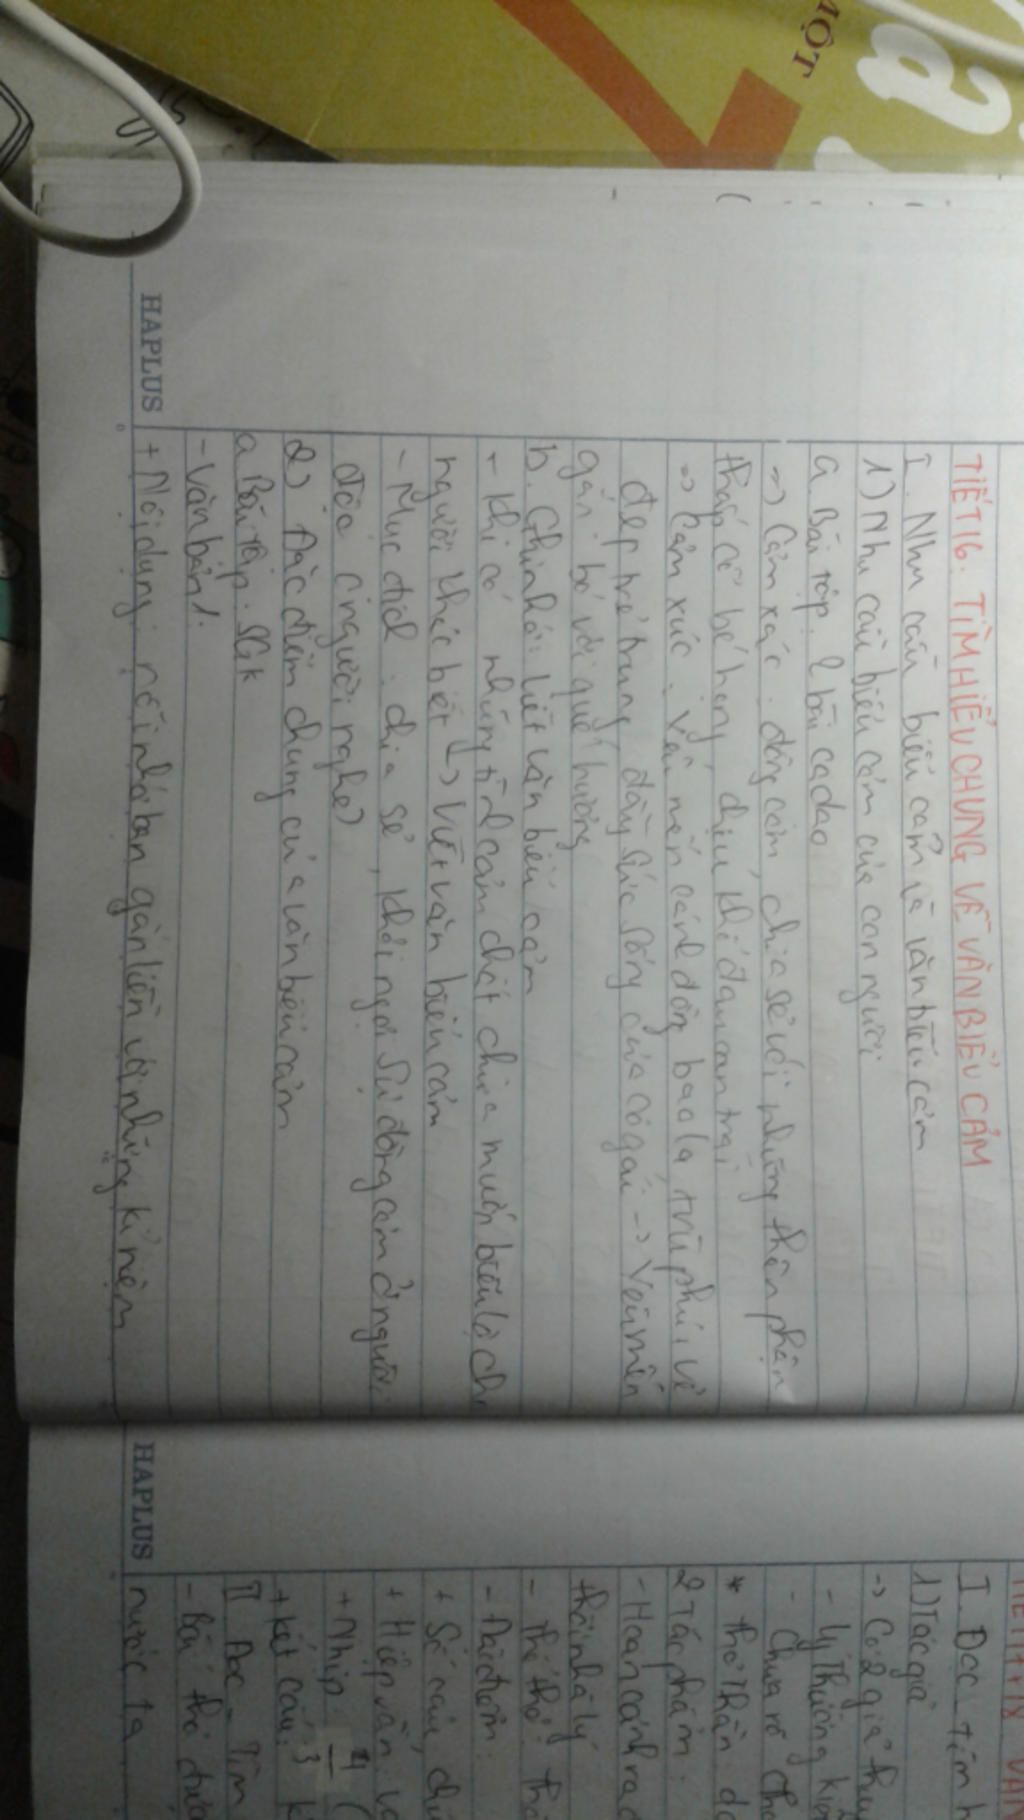 MỘT
TIẾT 16. TÌM HIỂU CHUNG VỀ VĂN BIỂU CẢM
I. Nhu cầu biểu cảm và văn biểu cảm
1) Nhu cầu biểu cảm của con người
a. Bài tập. 2 bài ca dao
-> Cảm xác: đồng cảm, chia sẻ với những thân phận
thấp cổ bé họng, chịu khổ đau oan trái
-> Cảm xúc: yêu mến cánh đồng bao la trù phú, vẻ
đẹp trẻ trung, đầy sức sống của cô gái -> yêu mến
gắn bó với quê hương
b. Ghi nhớ: Viết văn biểu cảm
- Khi có những tình cảm chất chứa muốn biểu lộ cho
người khác biết -> Viết văn biểu cảm
- Mục đích: chia sẻ, khơi ngợi sự đồng cảm ở người
đọc (người nghe)
2) Đặc điểm chung của văn biểu cảm
a. Bài tập. SGK
- Văn bản 1:
+ Nội dung: nỗi nhớ bạn gắn liền với những kỉ niệm
HAPLUS
I. Đọc - tìm
1) Tác giả
-> Có 2 giả thu
- Lý Thường Ki
- Chưa rõ
* thơ Thần:
2 Tác phẩm:
- Hoàn cảnh ra đ
thời nhà Lý
- Thể thơ: th
- Đặc điểm:
+ Số câu, ch
+ Hiệp vần: và
+ Nhịp 4/3 (
+ Kết cấu: k
II Đọc - Tìm
- Bài thơ
nước ta
HAPLUS